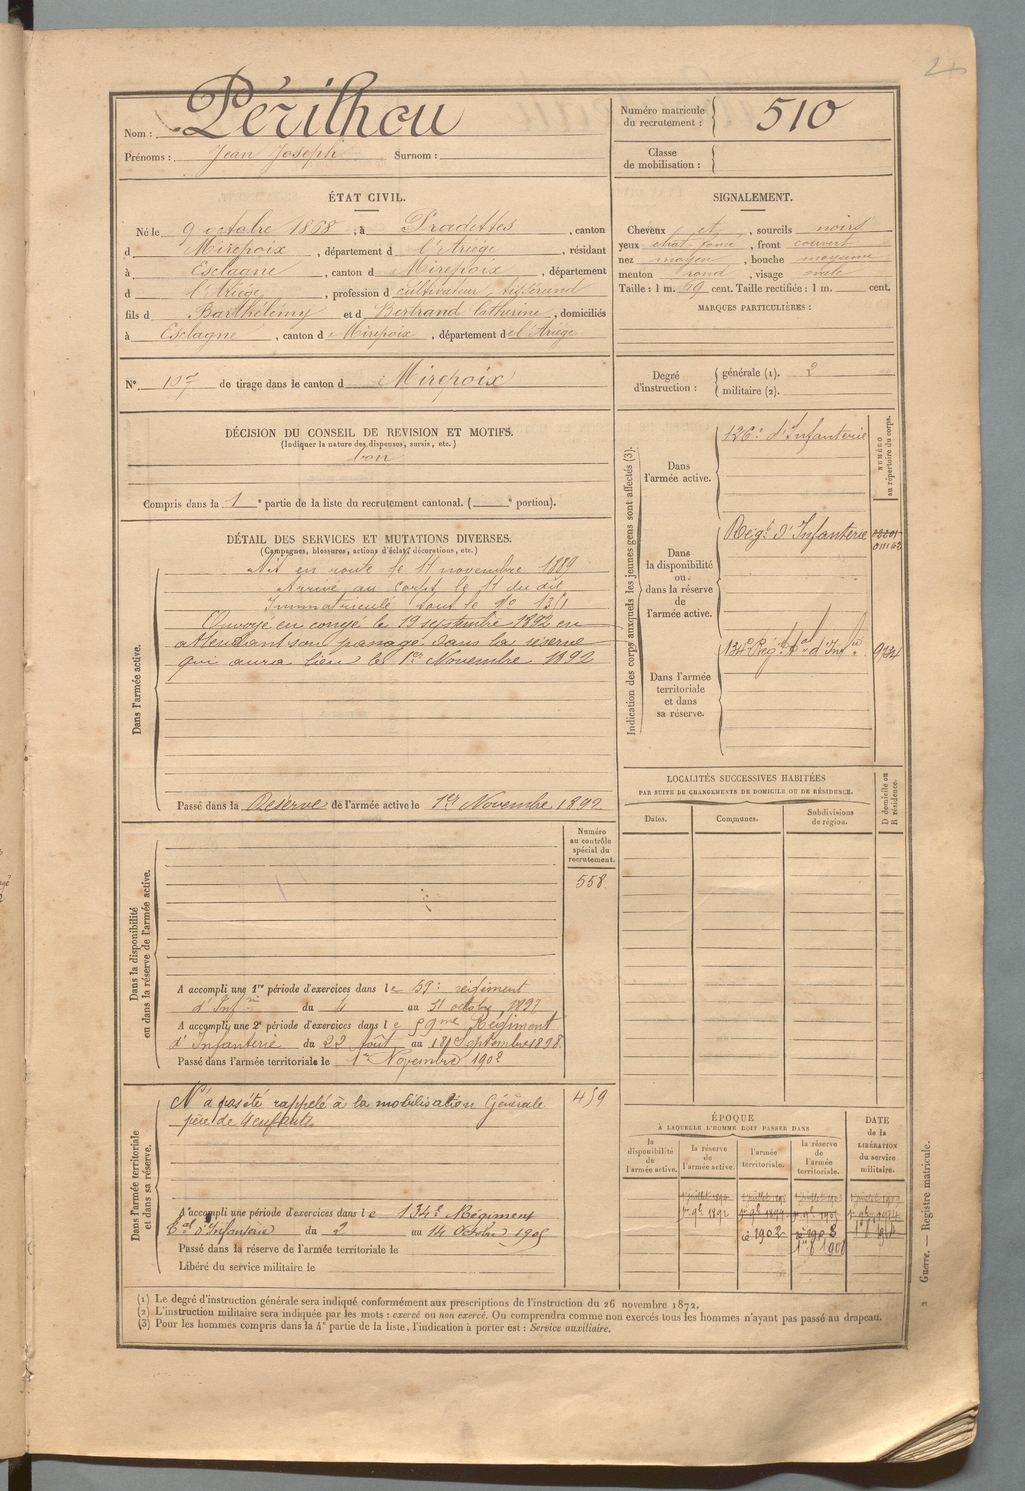 24
Nom : Périlhou
Prénoms : Jean Joseph Surnom :
Numéro matricule du recrutement : 510
Classe de mobilisation :
ÉTAT CIVIL.
Né le 9 octobre 1868, à Pradettes, canton
d Mirepoix, département d l'Ariège, résidant
à Esclagne, canton d Mirepoix, département
d l'Ariège, profession d cultivateur
fils d Barthélémy et d Bertrand Catherine, domiciliés
à Esclagne, canton de Mirepoix, département de l'Ariège
SIGNALEMENT.
Cheveux et, sourcils noirs
yeux chat. foncé, front couvert
nez moyen, bouche moyenne
menton rond, visage ovale
Taille : 1 m. 69 cent. Taille rectifiée : 1 m. cent.
MARQUES PARTICULIÈRES :
N° 107 de tirage dans le canton d Mirepoix
Degré d'instruction : générale (1). 2
militaire (2).
DÉCISION DU CONSEIL DE REVISION ET MOTIFS.
(Indiquer la nature des dispenses, sursis, etc.)
bon
Compris dans la 1e partie de la liste du recrutement cantonal. ( e portion).
DÉTAIL DES SERVICES ET MUTATIONS DIVERSES.
(Campagnes, blessures, actions d'éclat, décorations, etc.)
Dans l'armée active.
Mis en route le 11 novembre 1889
Arrivé au corps le 11 du dit
Immatriculé sous le N° 1351
Envoyé en congé le 19 septembre 1892 en
attendant son passage dans la réserve
qui aura lieu le 1er Novembre 1892
Passé dans la Réserve de l'armée active le 1er Novembre 1892
Indication des corps auxquels les jeunes gens sont affectés (3).
NUMÉRO au répertoire du corps.
Dans l'armée active.
126e d'Infanterie
Dans la disponibilité ou dans la réserve de l'armée active.
Régt d'Infanterie
01162
Dans l'armée territoriale et dans sa réserve.
134e Régt tal d'Infie
9734
LOCALITÉS SUCCESSIVES HABITÉES
PAR SUITE DE CHANGEMENTS DE DOMICILE OU DE RÉSIDENCE.
D domicile ou R résidence.
Dates. Communes. Subdivisions de région.
Dans la disponibilité ou dans la réserve de l'armée active.
Numéro au contrôle spécial du recrutement.
558
A accompli une 1re période d'exercices dans le 59e régiment
d'Infie du 4 au 31 octobre 1892
A accompli une 2e période d'exercices dans le 59me Régiment
d'Infanterie du 22 Août au 18 Septembre 1898.
Passé dans l'armée territoriale le 1er Novembre 1902
Dans l'armée territoriale et dans sa réserve.
N'a pas été rappelé à la mobilisation Générale
père de 4 enfants
459
A accompli une période d'exercices dans le 134e Régiment
tal d'Infanterie du 2 au 14 Octobre 1905
Passé dans la réserve de l'armée territoriale le
Libéré du service militaire le
ÉPOQUE
À LAQUELLE L'HOMME DOIT PASSER DANS
DATE de la LIBÉRATION du service militaire.
la disponibilité de l'armée active. la réserve de l'armée active. l'armée territoriale. la réserve de l'armée territoriale.
1er 9bre 1892
1902
1908
(1) Le degré d'instruction générale sera indiqué conformément aux prescriptions de l'instruction du 26 novembre 1872.
(2) L'instruction militaire sera indiquée par les mots : exercé ou non exercé. On comprendra comme non exercés tous les hommes n'ayant pas passé au drapeau.
(3) Pour les hommes compris dans la 4e partie de la liste, l'indication à porter est : Service auxiliaire.
Guerre. — Registre matricule.